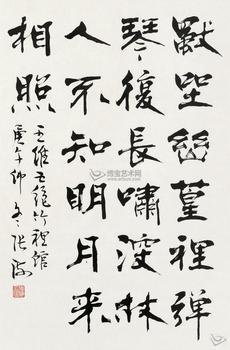 獨坐幽篁裡彈
琴復長嘯深林
人不知明月來
相照
王維五絕竹裡館
庚午仲冬張海
博宝艺术网